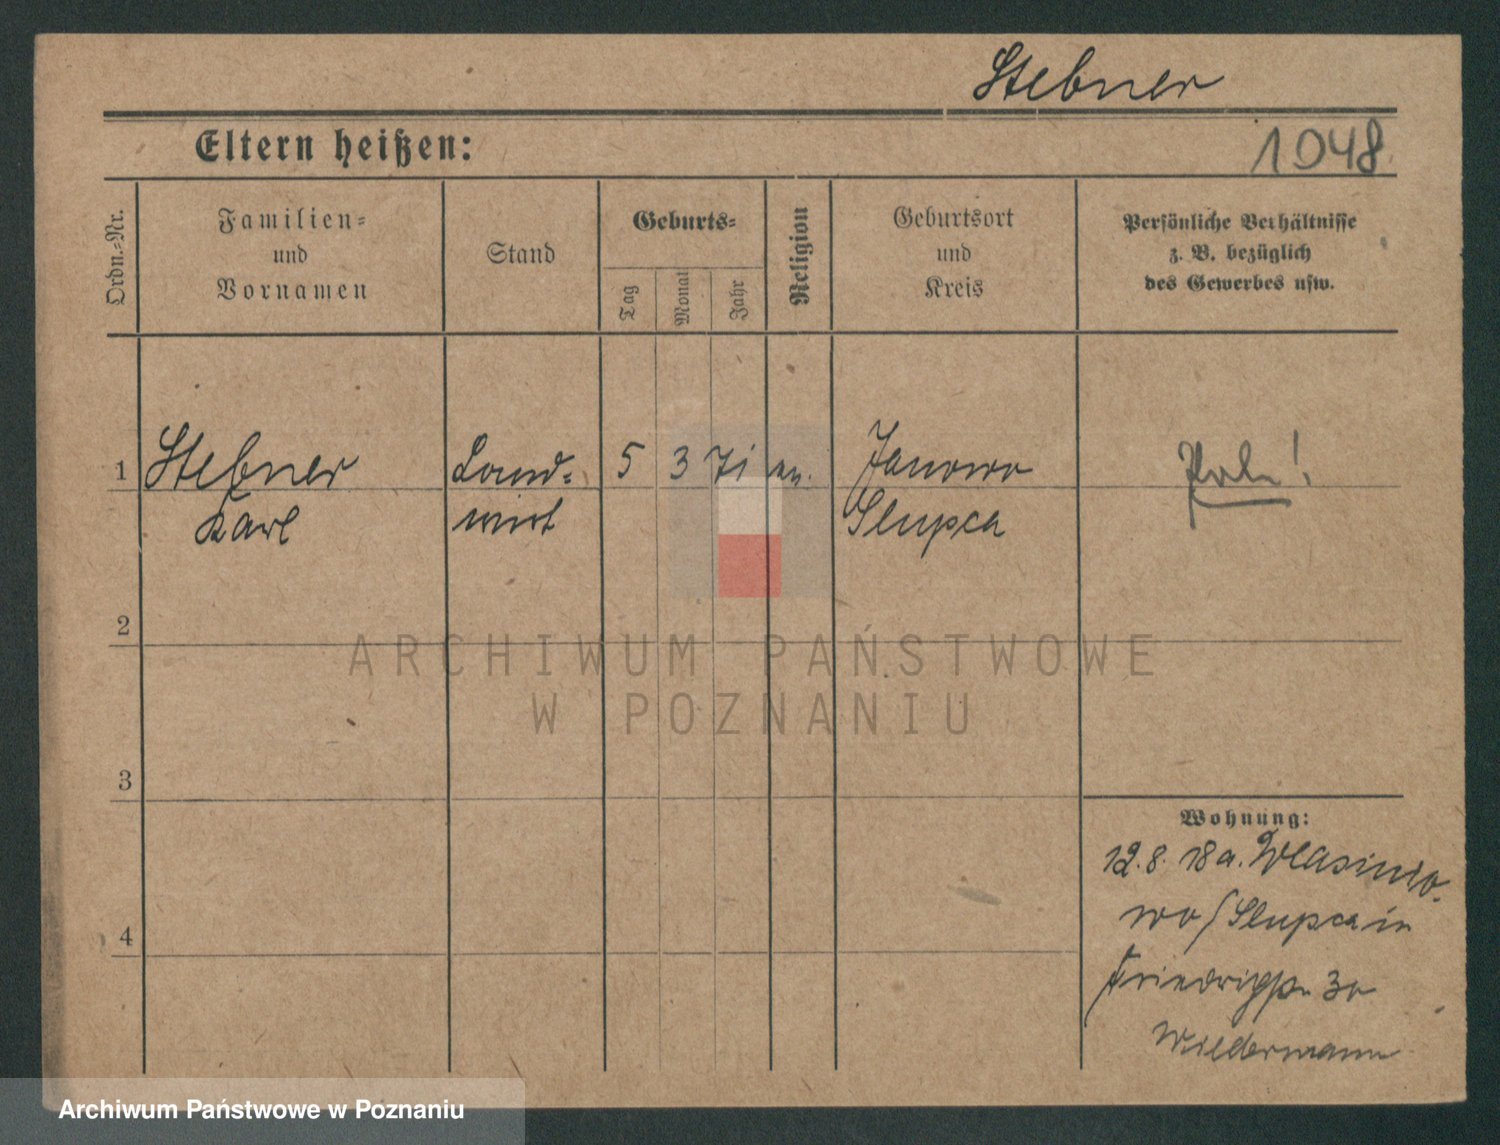 Stebner
Eltern heißen:
1048
Ordn.-Nr.
Familien-
und
Vornamen
Stand
Geburts-
Tag
Monat
Jahr
Religion
Geburtsort
und
Kreis
Persönliche Verhältnisse
z. B. bezüglich
des Gewerbes usw.
1
Stebner
Karl
Land-
wirt
5
3
71
ev.
Janowo
Slupca
2
3
4
Wohnung:
12. 8. 18 a.
wo / Slupca in
30
Wildermann
ARCHIWUM PAŃSTWOWE
W POZNANIU
Archiwum Państwowe w Poznaniu